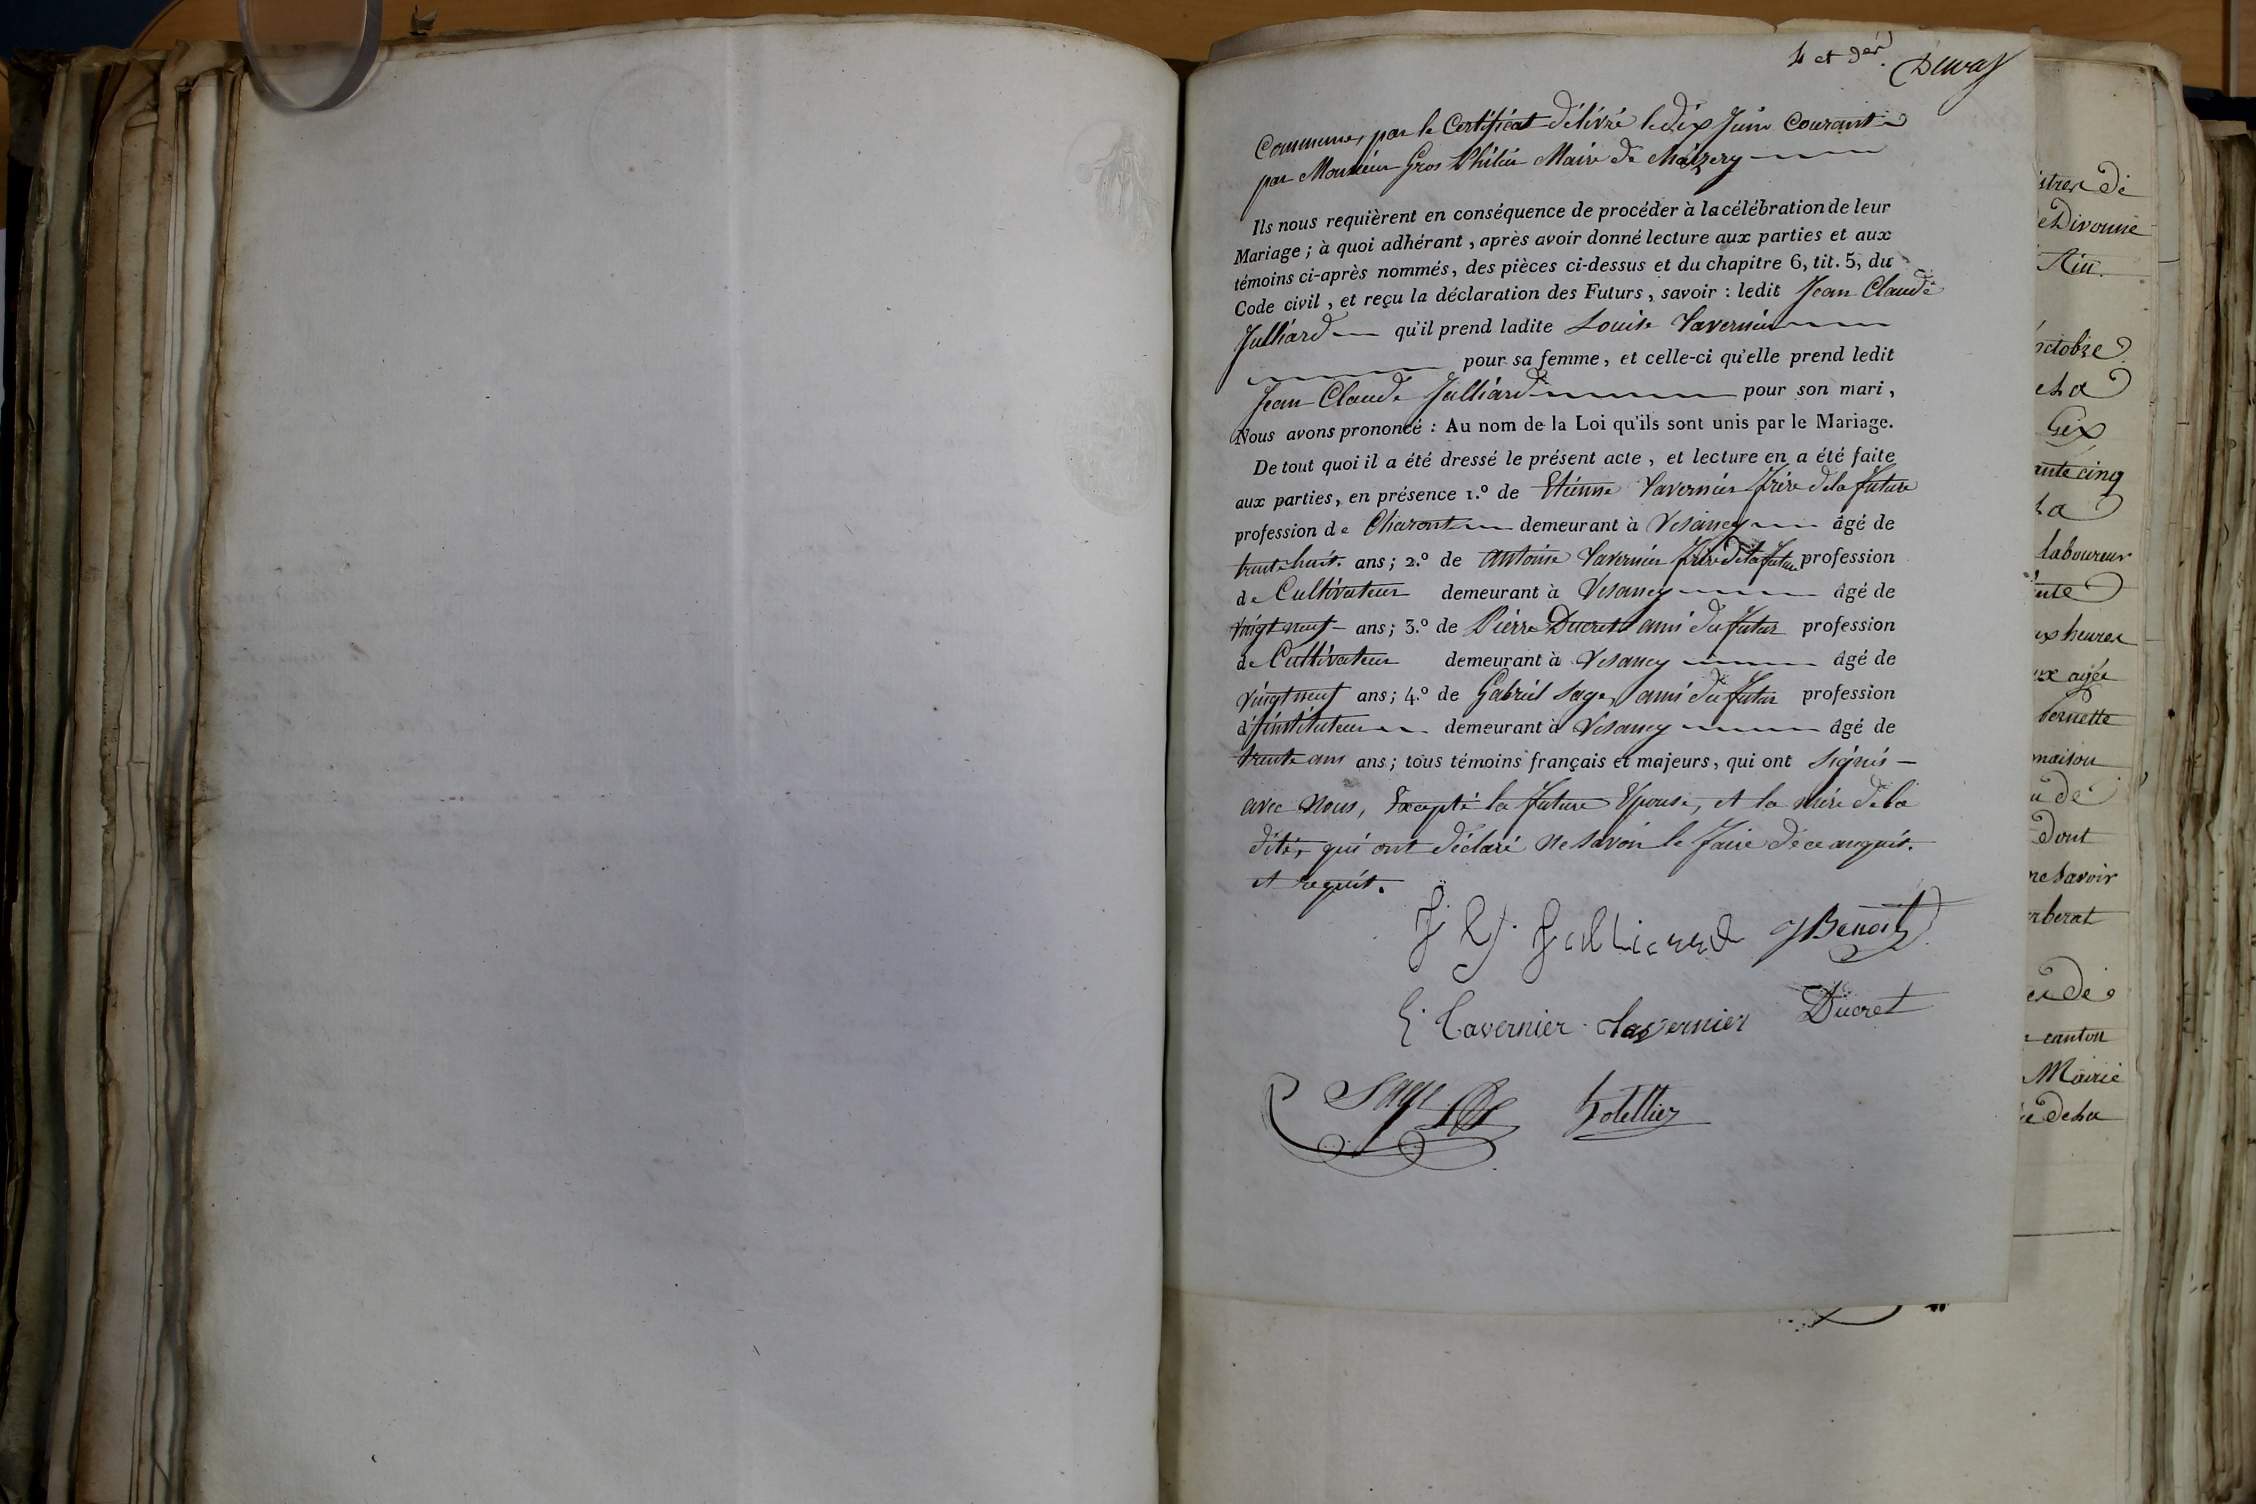 4 et der.
Commune, par le Certificat délivré le dix Juin Courant
par Monsieur Gros Maire de Chézery
Ils nous requièrent en conséquence de procéder à la célébration de leur
Mariage ; à quoi adhérant , après avoir donné lecture aux parties et aux
témoins ci-après nommés, des pièces ci-dessus et du chapitre 6, tit. 5, du
Code civil , et reçu la déclaration des Futurs , savoir : ledit Jean Claude
Julliard qu'il prend ladite Louise Tavernier
pour sa femme, et celle-ci qu'elle prend ledit
Jean Claude Julliard pour son mari,
Nous avons prononcé : Au nom de la Loi qu'ils sont unis par le Mariage.
De tout quoi il a été dressé le présent acte , et lecture en a été faite
aux parties, en présence 1.º de Etienne Tavernier frère de la future
profession de Charont demeurant à Vesancy âgé de
trente huit. ans ; 2.º de Antoine Tavernier frère de la future profession
de Cultivateur demeurant à Vesancy âgé de
vingt neuf ans ; 3.º de Pierre Ducret ami du futur profession
de Cultivateur demeurant à Vesancy âgé de
vingt neuf ans ; 4.º de Gabriel Sage, ami du futur profession
d'instituteur demeurant à Vesancy âgé de
trente ans ans ; tous témoins français et majeurs, qui ont signés
avec Nous, Excepté la future Epouse, et la mère de la
dite, qui ont déclaré ne savoir le faire de ce anquis.
et requit.
Julliard JBenoit
E. Tavernier tavernier Ducret
Sage
istres de
e Divonne
Ain.
octobre
Gex
ante cinq
laboureur
ente
ux heures
ux agée
bernette
maison
u de
dont
ne savoir
rberat
es de
canton
Mairie
e de la